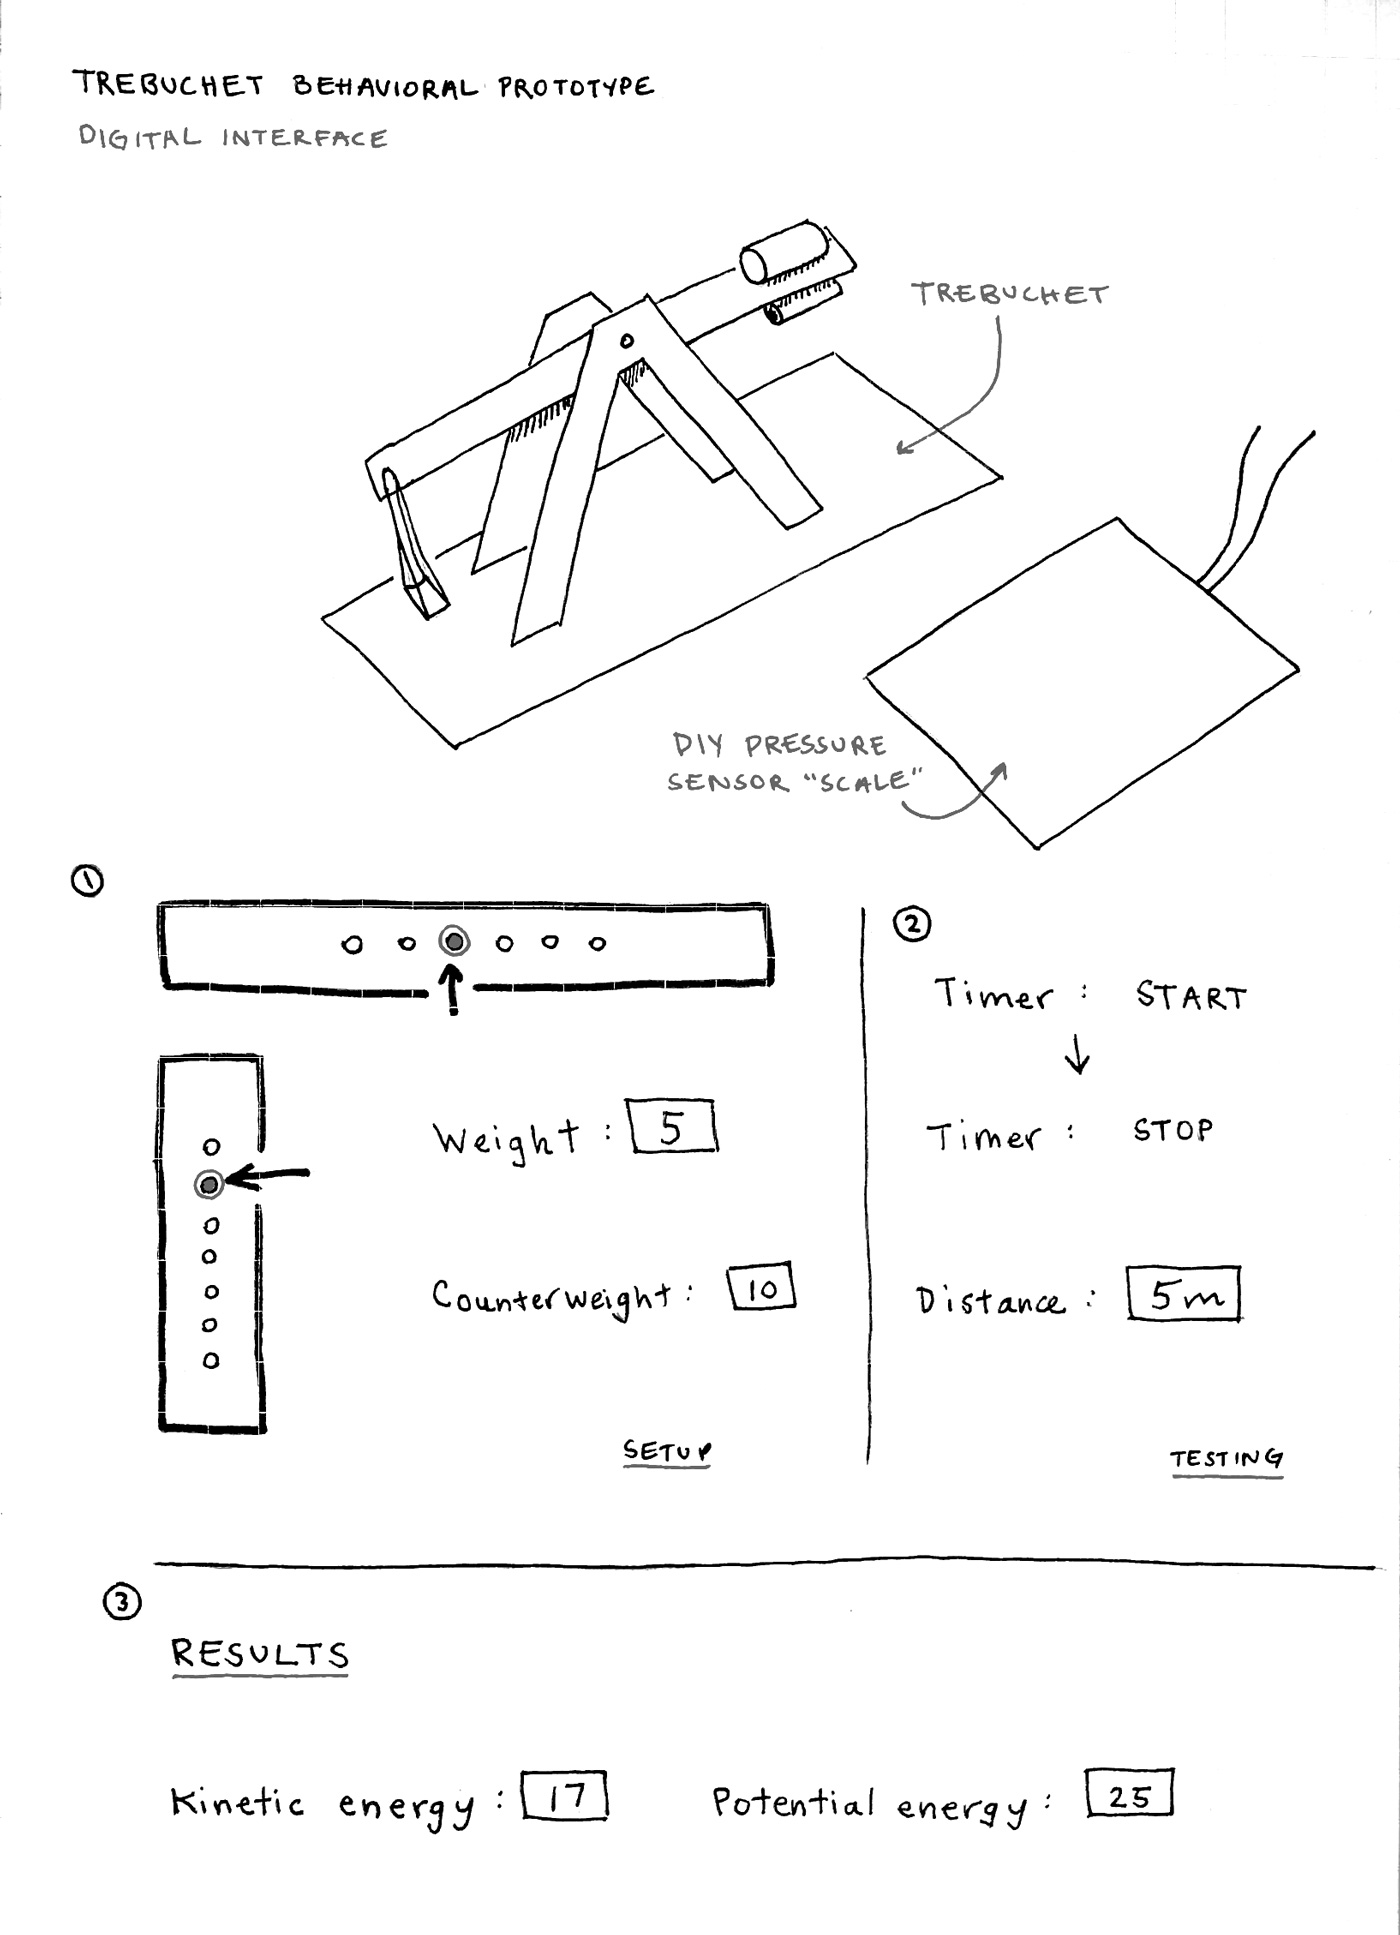 TREBUCHET BEHAVIORAL PROTOTYPE
DIGITAL INTERFACE
TREBUCHET
DIY PRESSURE
SENSOR "SCALE"
1
Weight : 5
Counterweight : 10
SETUP
2
Timer : START
Timer : STOP
Distance : 5m
TESTING
3
RESULTS
Kinetic energy : 17
Potential energy : 25